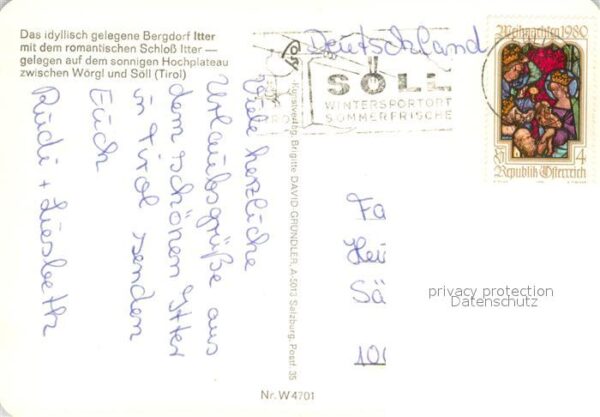 Das idyllisch gelegene Bergdorf Itter
mit dem romantischen Schloß Itter —
gelegen auf dem sonnigen Hochplateau
zwischen Wörgl und Söll (Tirol)
Viele herzliche
Urlaubsgrüße aus
dem schönen Ytter
in Tirol senden
Euch
Rudi + Liesbeth
Kunstverlag Brigitte DAVID GRÜNDLER, A-5013 Salzburg, Postf. 35
Nr. W 4701
Deutschland
SÖLL
WINTERSPORTORT
SOMMERFRISCHE
Weihnachten 1980
S 4
Republik Österreich
Fa
Hei
Sä
100
privacy protection
Datenschutz